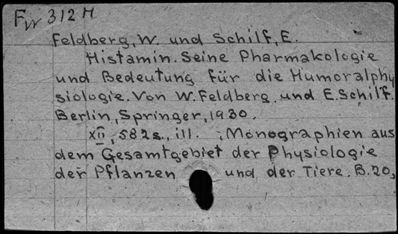 Fw 312 H
Feldberg, W. und Schilf, E.
Histamin. Seine Pharmakologie
und Bedeutung für die Humoralphy
siologie. Von W. Feldberg und E. Schilf.
Berlin, Springer, 1930.
XII, 582s. ill. Monographien aus
dem Gesamtgebiet der Physiologie
der Pflanzen und der Tiere. B. 20,